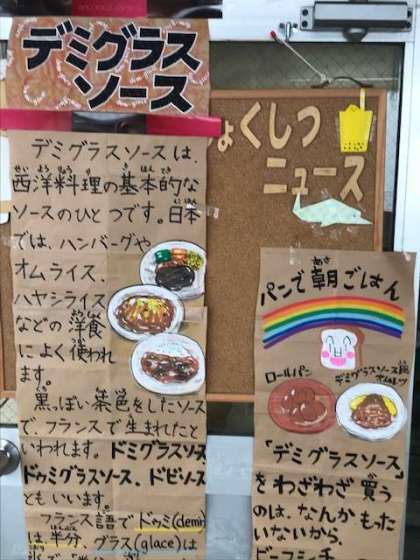 デミグラス
ソース
デミグラスソースは、
西洋料理の基本的な
ソースのひとつです。日本
では、ハンバーグや
オムライス、
ハヤシライス
などの洋食
によく使われ
ます。
黒っぽい茶色をしたソース
で、フランスで生まれたと
いわれます。ドミグラスソース、
ドゥミグラスソース、ドビソース
ともいいます。
フランス語でドゥミ(demi)
は半分、グラス(glace)は
ょくしつ
ニュース
パンで朝ごはん
ロールパン
デミグラスソース
「デミグラスソース」
をわざわざ買う
のは、なんかもった
いないから、